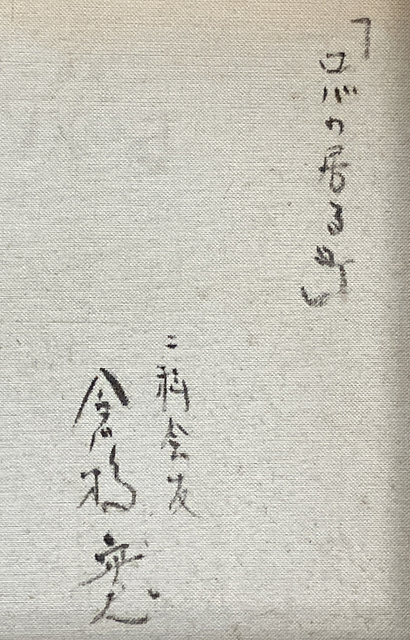 「ロバの居る町」
二科会友
倉橋寛